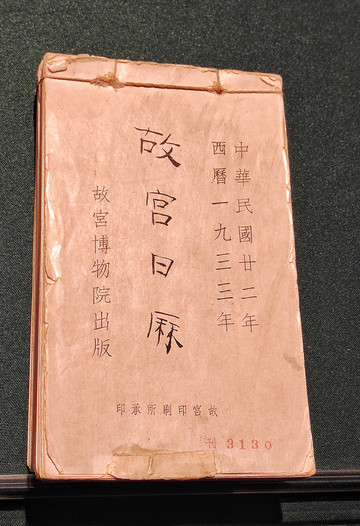 中華民國廿二年
西曆一九三三年
故宮日厤
故宮博物院出版
故宮印刷所承印
刊 3130